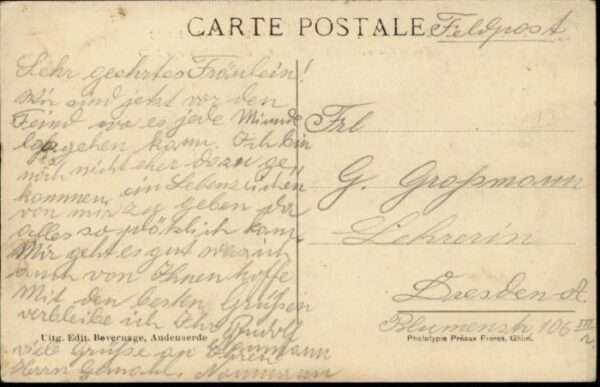 CARTE POSTALE
Feldpost
Sehr geehrtes Fräulein!
Wir sind jetzt vor den
Feind wo es jede Minute
losgehen kann. Ich bin
noch nicht eher dazu ge
kommen, ein Lebenszeichen
von mir zu geben da
alles so plötzlich kam.
Mir geht es gut was ich
auch von Ihnen hoffe
Mit den besten Grüßen
verbleibe ich Ihr Rudolf
Naumann
viele Grüße an
Herrn Gemahl. Naumann
Frl
G. Großmann
Lehrerin
Dresden-A.
Blumenstr. 106 III
Uitg. Edit. Bevernage, Audenaerde
Phototypie Préaux Freres, Ghlin.